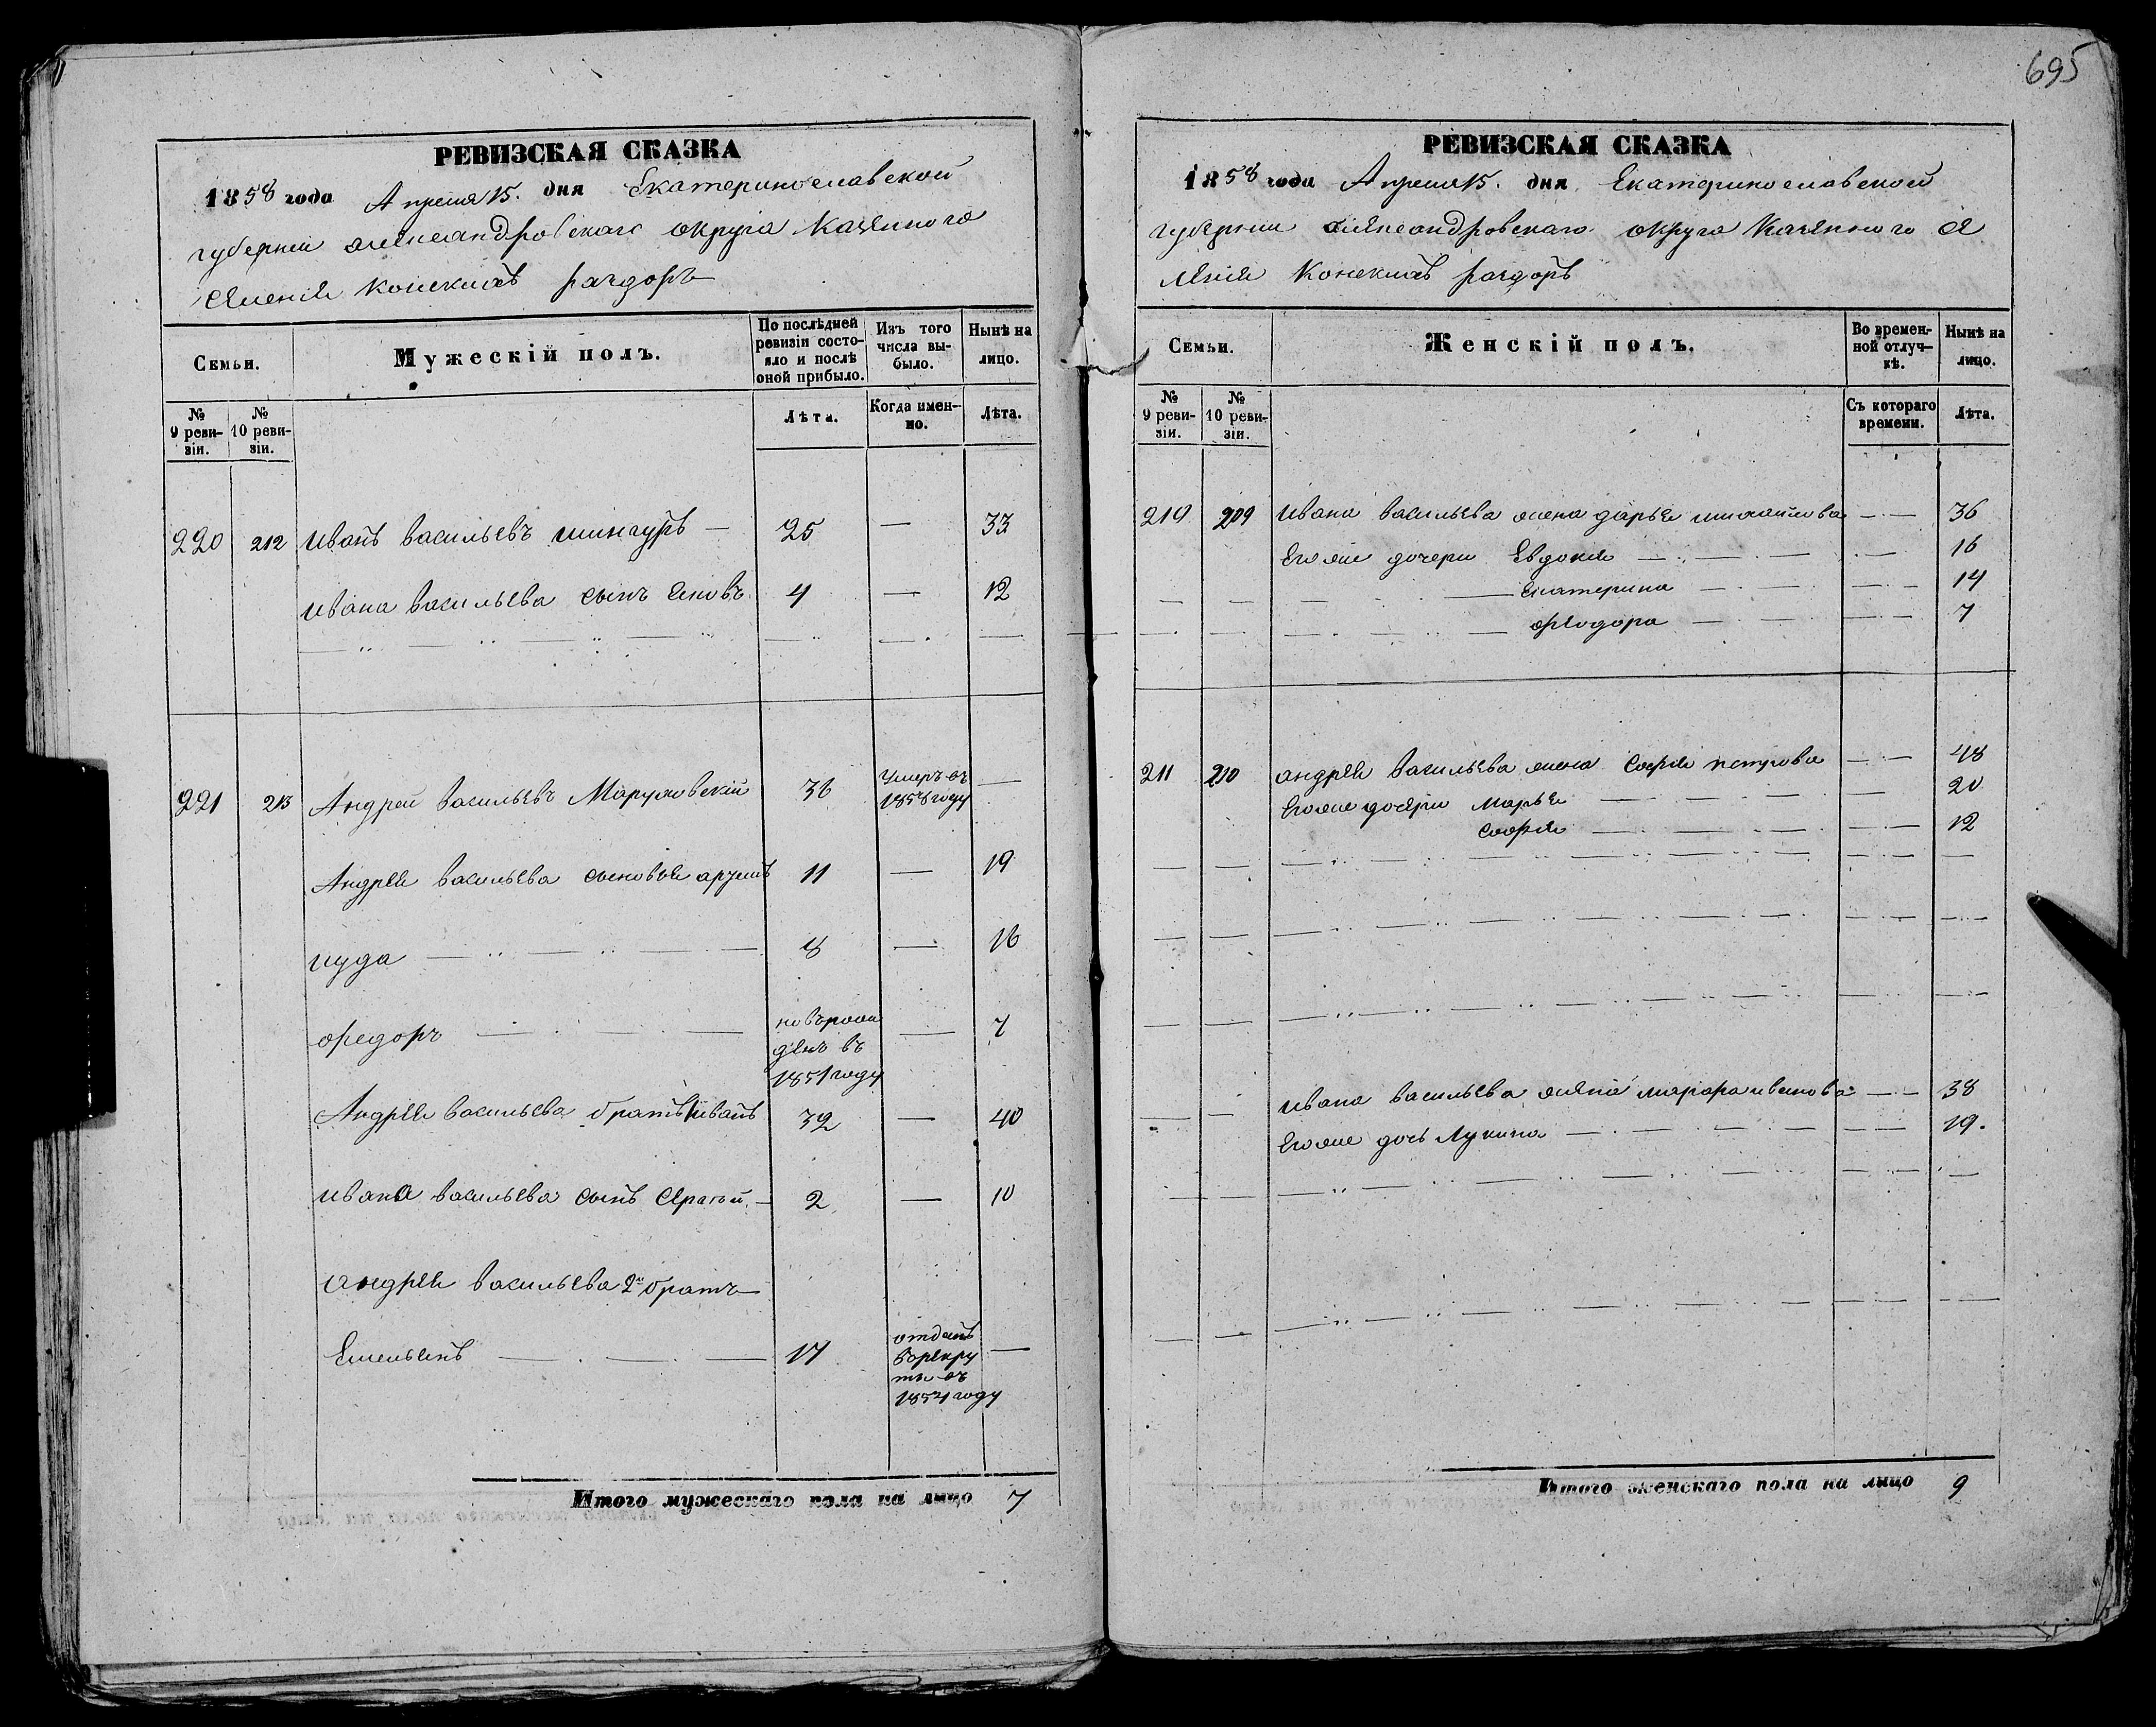 695
РЕВИЗСКАЯ СКАЗКА
1858 года Апреля 15. дня Екатеринославской
губернии Александровскаго округа Казенного
Селения Конскихъ раздоръ
Семьи.
Мужескій полъ.
По послѣдней ревизіи состояло и послѣ оной прибыло.
Изъ того числа выбыло.
Нынѣ на лицо.
№ 9 ревизіи.
№ 10 ревизіи.
Лѣта.
Когда именно.
Лѣта.
220 212 Иванъ Васильевъ — 25 — 33
Ивана Васильева сынъ Яковъ 4 — 12
221 213 Андрей Васильевъ 36 Умеръ въ 1858 году —
Андрея Васильева сыновья 11 — 19
Иуда 8 — 16
Федоръ новърожденъ въ 1851 году — 7
Андрея Васильева братъ Иванъ 32 — 40
Ивана Васильева сынъ Сергѣй 2 — 10
Андрея Васильева 2й братъ
Емельянъ 17 отданъ в рекруты въ 1854 году —
Итого мужескаго пола на лицо 7
РЕВИЗСКАЯ СКАЗКА
1858 года Апреля 15. дня Екатеринославской
губернии Александровскаго округа Казенного Се
ления Конскихъ раздоръ
Семьи.
Женскій полъ.
Во временной отлучкѣ.
Нынѣ на лицо.
№ 9 ревизіи.
№ 10 ревизіи.
Съ котораго времени.
Лѣта.
219 209 Ивана Васильева жена Дарья Михайлова — 36
Егоже дочери Евдокия — 16
Екатерина — 14
Феодора — 7
211 210 Андрея Васильева жена София Петрова — 48
Егоже дочери Марья — 20
София — 12
Ивана Васильева жена Марфа Иванова — 38
Егоже дочь — 19.
Итого женскаго пола на лицо 9